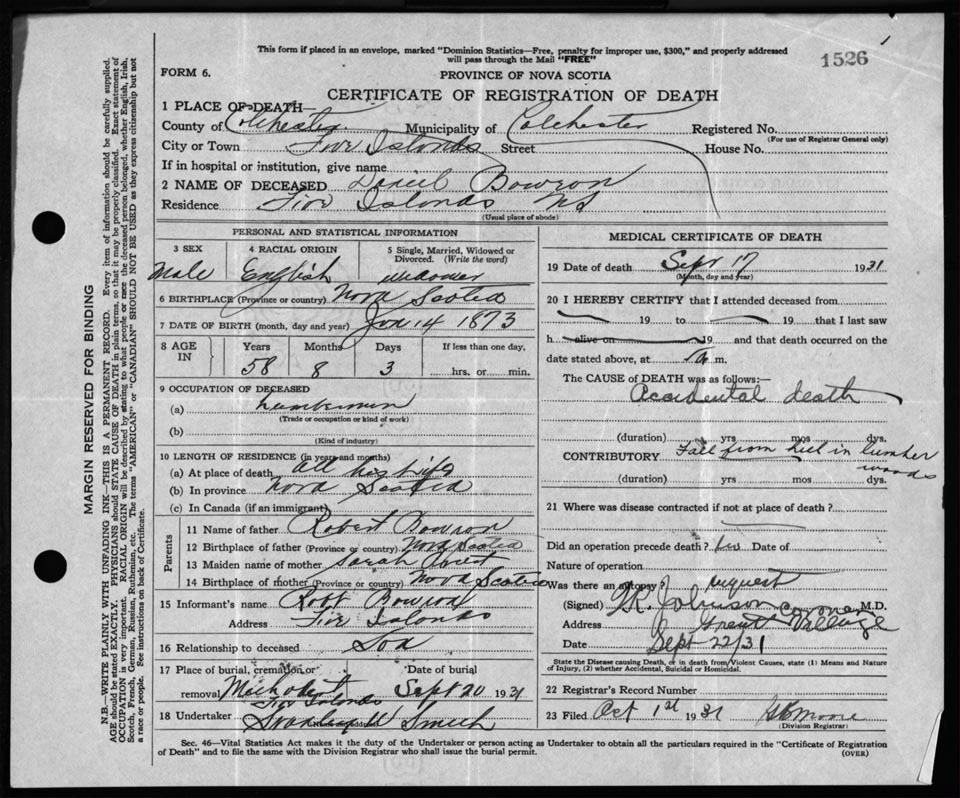 This form if placed in an envelope, marked "Dominion Statistics—Free, penalty for improper use, $300," and properly addressed
will pass through the Mail "FREE"
1526
FORM 6.
PROVINCE OF NOVA SCOTIA
CERTIFICATE OF REGISTRATION OF DEATH
1 PLACE OF DEATH—
County of Colchester Municipality of Colchester Registered No.
(For use of Registrar General only)
City or Town Five Islands Street House No.
If in hospital or institution, give name
2 NAME OF DECEASED Daniel Bowron
Residence Five Islands NS
(Usual place of abode)
PERSONAL AND STATISTICAL INFORMATION
3 SEX 4 RACIAL ORIGIN 5 Single, Married, Widowed or Divorced. (Write the word)
Male English widower
6 BIRTHPLACE (Province or country) Nova Scotia
7 DATE OF BIRTH (month, day and year) Jan 14 1873
8 AGE IN Years Months Days If less than one day,
58 8 3 hrs. or min.
9 OCCUPATION OF DECEASED
(a) Lumberman
(Trade or occupation or kind of work)
(b)
(Kind of industry)
10 LENGTH OF RESIDENCE (in years and months)
(a) At place of death all his life
(b) In province Nova Scotia
(c) In Canada (if an immigrant)
Parents
11 Name of father Robert Bowron
12 Birthplace of father (Province or country) Nova Scotia
13 Maiden name of mother Sarah
14 Birthplace of mother (Province or country) Nova Scotia
15 Informant's name Robt Bowron
Address Five Islands
16 Relationship to deceased Son
17 Place of burial, cremation or removal Date of burial
Five Islands Sept 20 1931
18 Undertaker Smith
MEDICAL CERTIFICATE OF DEATH
19 Date of death Sept 17 1931
(Month, day and year)
20 I HEREBY CERTIFY that I attended deceased from
19 to 19 that I last saw
h alive on 19 and that death occurred on the
date stated above, at m.
The CAUSE of DEATH was as follows:—
Accidental death
(duration) yrs mos dys.
CONTRIBUTORY Fall from hill in lumber woods
(duration) yrs. mos dys.
21 Where was disease contracted if not at place of death?
Did an operation precede death? Date of
Nature of operation
Was there an autopsy? request
(Signed) Johnson Coroner M.D.
Address Great Village
Date Sept 22/31
State the Disease causing Death, or in death from Violent Causes, state (1) Means and Nature
of Injury, (2) whether Accidental, Suicidal or Homicidal.
22 Registrar's Record Number
23 Filed Oct 1st 1931
(Division Registrar)
Sec. 46—Vital Statistics Act makes it the duty of the Undertaker or person acting as Undertaker to obtain all the particulars required in the "Certificate of Registration
of Death" and to file the same with the Division Registrar who shall issue the burial permit.
(OVER)
MARGIN RESERVED FOR BINDING
N.B.—WRITE PLAINLY WITH UNFADING INK—THIS IS A PERMANENT RECORD. Every item of information should be carefully supplied.
AGE should be stated EXACTLY. PHYSICIANS should STATE CAUSE OF DEATH in plain terms, so that it may be properly classified. Exact statement of
OCCUPATION is very important. RACIAL ORIGIN will be described by stating to what people or race the deceased person belonged, whether English, Irish,
Scotch, French, German, Russian, Ruthenian, etc. The terms "AMERICAN" or "CANADIAN" SHOULD NOT BE USED as they express citizenship but not
a race or people. See instructions on back of Certificate.